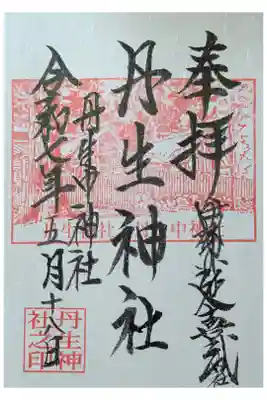 奉拝
丹生神社
丹生中神社
令和七年五月十八日
丹生神
社之印